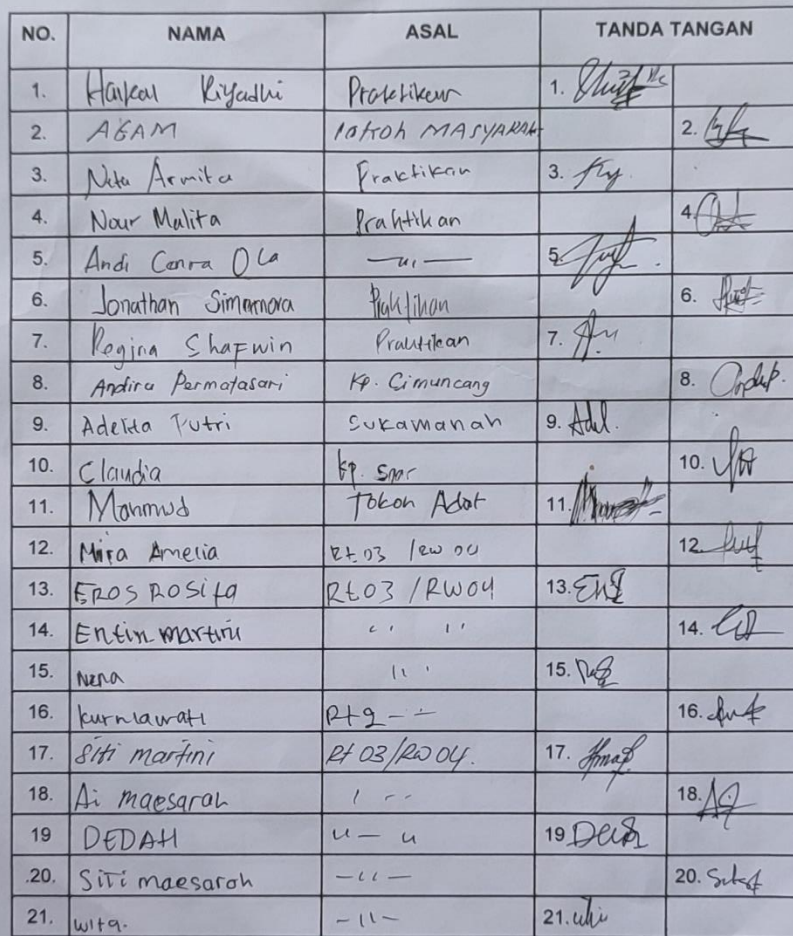 NO. NAMA ASAL TANDA TANGAN
1. Haikal Riyadhi Praktikan 1.
2. AGAM TOKOH MASYARAKAT 2.
3. Neta Armita Praktikan 3.
4. Nour Malita Praktikan 4.
5. Andi Canra Ola —"— 5.
6. Jonathan Simamora Praktikan 6.
7. Regina Shafwin Praktikan 7.
8. Andira Permatasari Kp. Cimuncang 8.
9. Adelita Putri Sukamanah 9. Adel.
10. Claudia Kp. 10.
11. Mahmud Tokoh Adat 11.
12. Mira Amelia Rt 03 /RW 04 12.
13. EROS ROSITA Rt 03 /RW04 13.
14. Entin martini " " 14.
15. Nena " 15.
16. kurniawati Rt 16.
17. Siti martini Rt 03/RW 04. 17.
18. Ai maesarah 18.
19 DEDAH "— " 19
20. SiTi maesaroh —"— 20.
21. wita. —"— 21.